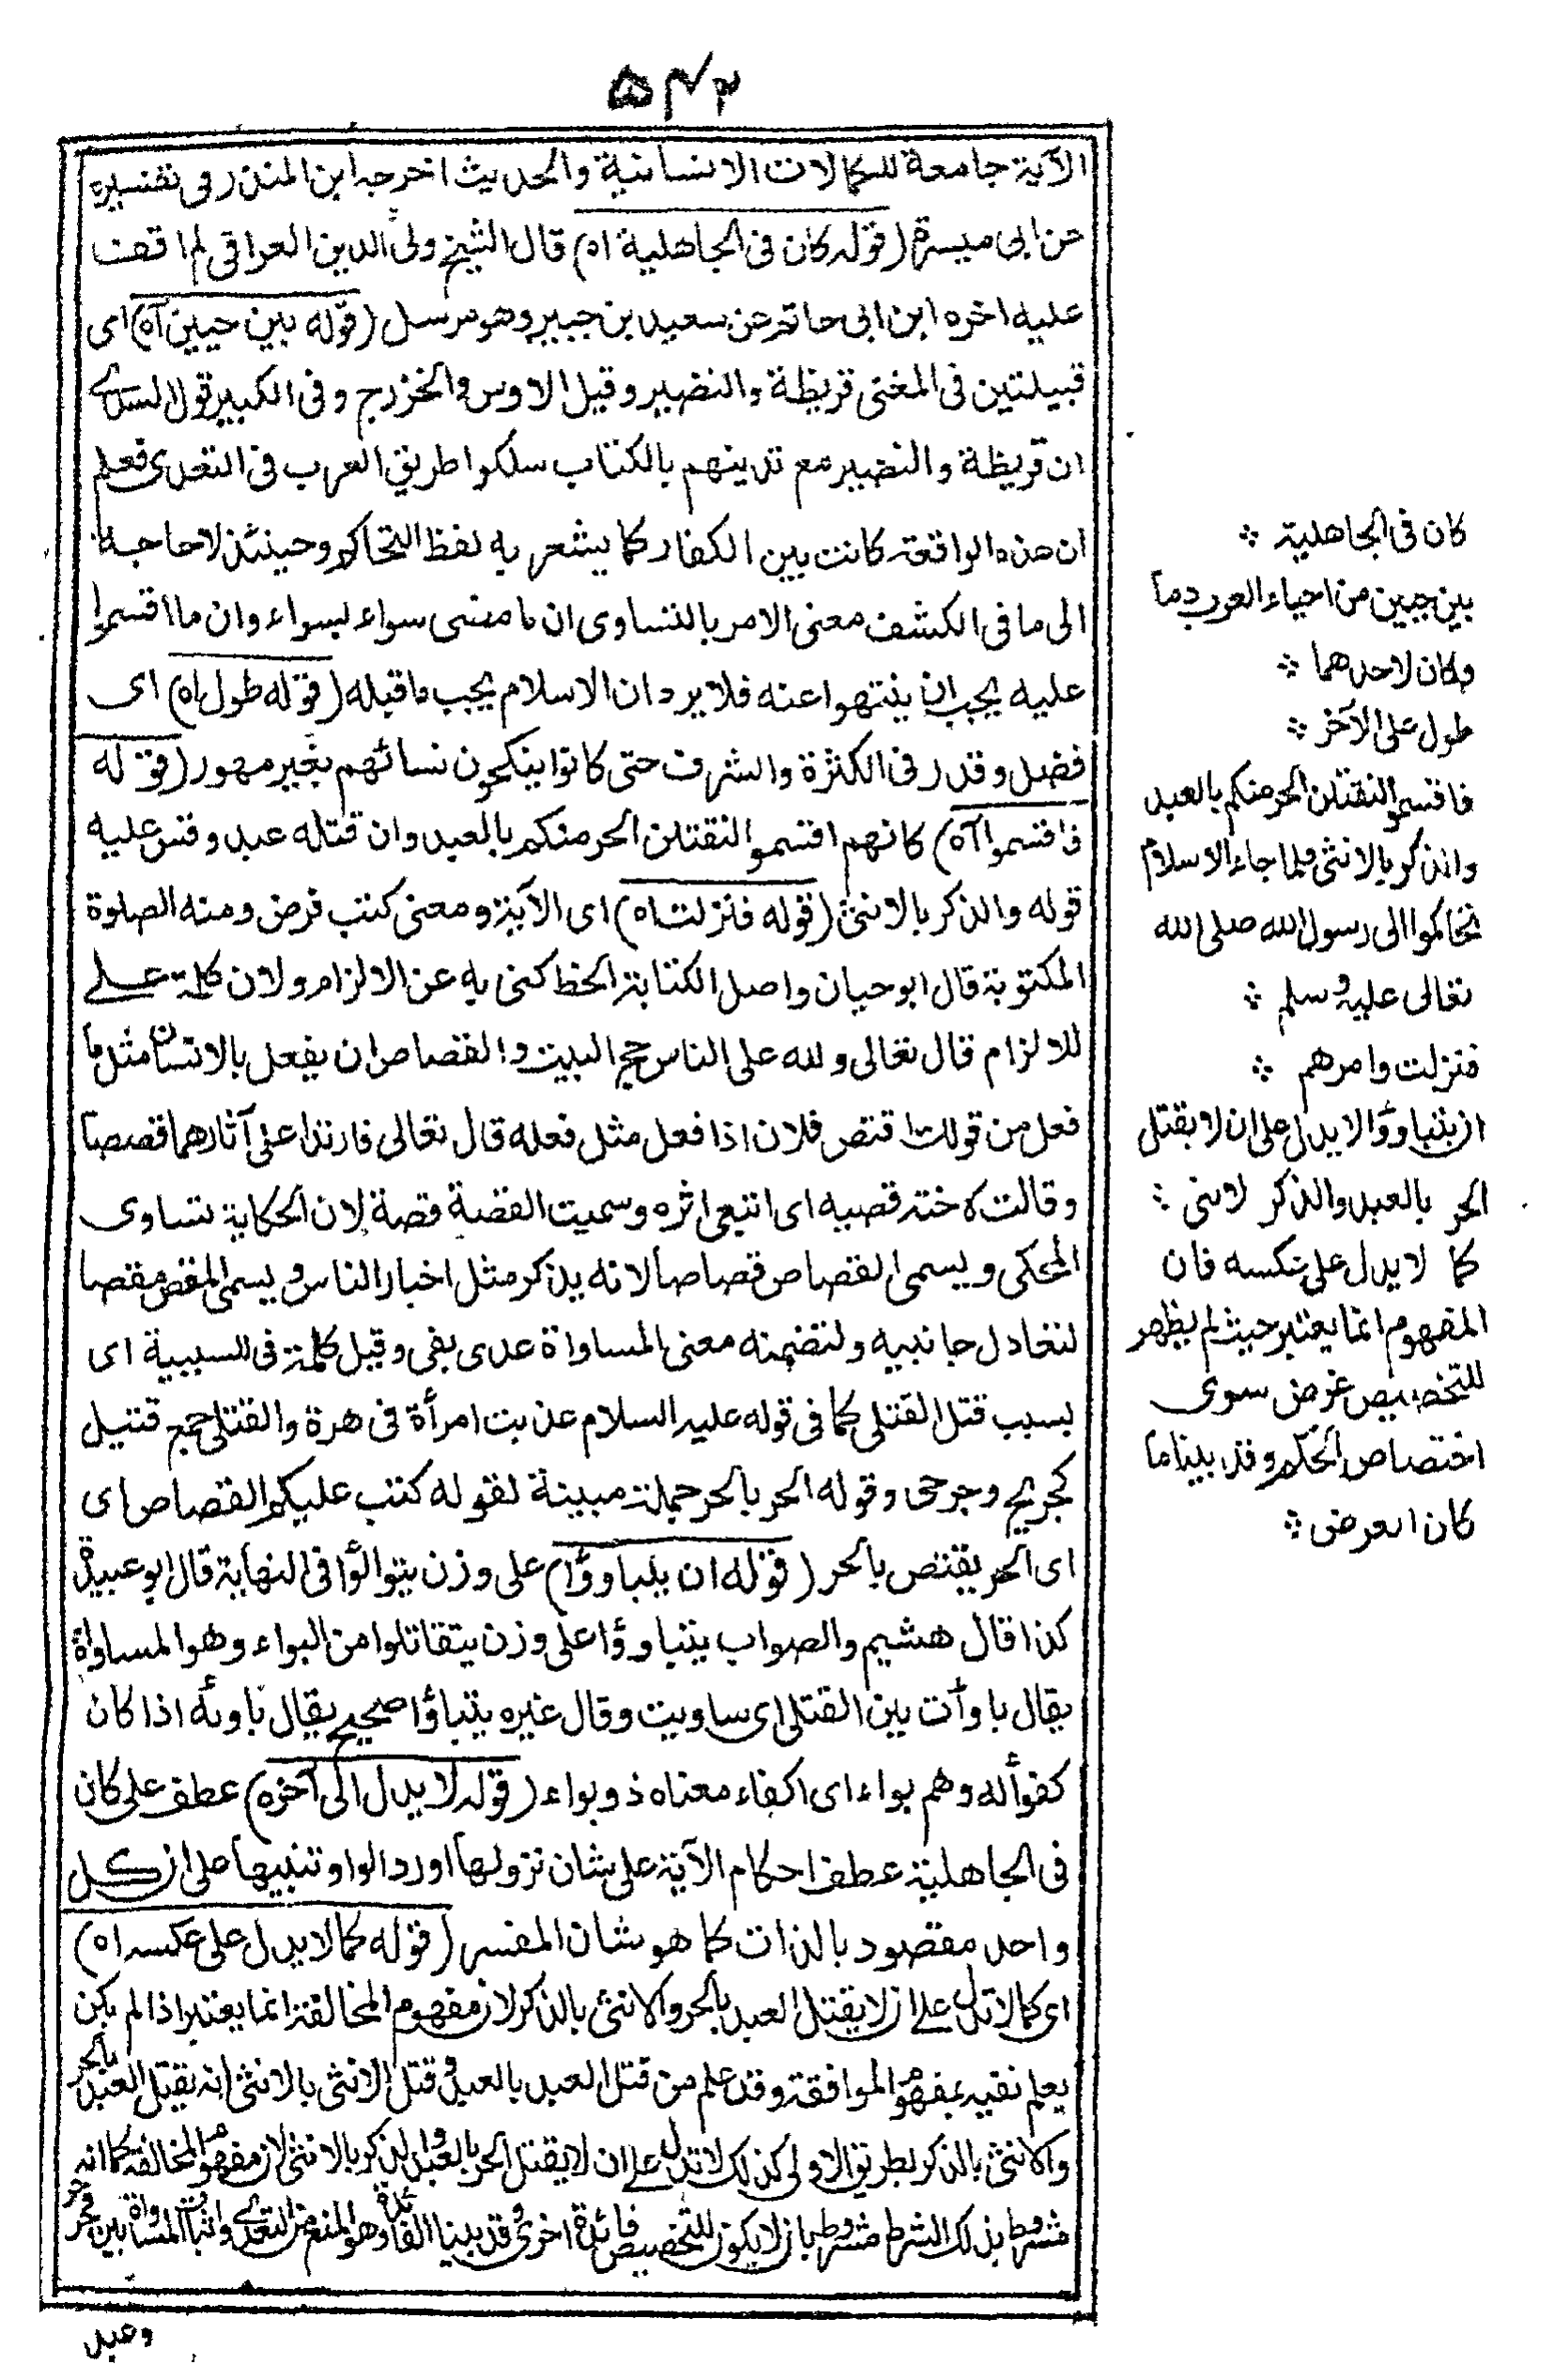 ۵۴۲
الآية جامعة للكمالات الانسانية والحديث اخرجه ابن المنذر فى تفسيره
عن ابى ميسرة (قوله كان فى الجاهلية اه) قال الشيخ ولى الدين العراقى لم اقف
عليه اخره ابن ابى حاتم عن سعيد بن جبير وهو مرسل (قوله بين حيين آه) اى
قبيلتين فى المغنى قريظة والنضير وقيل الاوس والخزرج وفى الكبير قول السدى
ان قريظة والنضير مع تدينهم بالكتاب سلكوا طريق العرب فى التعدى فعلم
ان هذه الواقعة كانت بين الكفار كما يشعر به لفظ التحاكم وحينئذ لا حاجة
الى ما فى الكشف معنى الامر بالتساوى ان ما مضى سواء بسواء وان ما اقسموا
عليه يجب ان ينتهوا عنه فلا يرد ان الاسلام يجب ما قبله (قوله طول اه) اى
فضل وقدر فى الكثرة والشرف حتى كانوا ينكحون نسائهم بغير مهور (قوله
فاقسموا آه) كانهم اقسموا لنقتلن الحر منكم بالعبد وان قتله عبد وقس عليه
قوله والذكر بالانثى (قوله فنزلت اه) اى الآية ومعنى كتب فرض ومنه الصلوة
المكتوبة قال ابو حيان واصل الكتابة الخط كنى به عن الالزام ولان كلمة على
للالزام قال تعالى ولله على الناس حج البيت والقصاص ان يفعل بالانسان مثل ما
فعل من قولك اقتص فلان اذا فعل مثل فعله قال تعالى فارتدا على آثارهما قصصا
وقالت لاخته قصيه اى اتبعى اثره وسميت القصة قصة لان الحكاية تساوى
المحكى ويسمى القصاص قصاصا لانه يذكر مثل اخبار الناس ويسمى المقص مقصا
لتعادل جانبيه ولتضمنه معنى المساواة عدى بفى وقيل كلمة فى للسببية اى
بسبب قتل القتلى كما فى قوله عليه السلام عذبت امرأة فى هرة والقتلى جمع قتيل
كجريح وجرحى وقوله الحر بالحر جملة مبينة لقوله كتب عليكم القصاص اى
اى الحر يقتص بالحر (قوله ان يلباوؤا) على وزن يتوالؤا فى النهاية قال ابو عبيدة
كذا قال هشيم والصواب يتباوؤا على وزن يتقاتلوا من البواء وهو المساواة
يقال باوأت بين القتلى اى ساويت وقال غيره يتباؤا صحيح يقال باوئه اذا كان
كفوأ له وهم بواء اى اكفاء معناه ذو بواء (قوله لا يدل الى آخره) عطف على كان
فى الجاهلية عطف احكام الآية على شان نزولها اورد الواو تنبيها على ان كل
واحد مقصود بالذات كما هو شان المفسر (قوله كما لا يدل على عكسه اه)
اى كما لا تدل على ان لا يقتل العبد بالحر والانثى بالذكر لان مفهوم المخالفة انما يعتبر اذا لم يكن
يعلم نفيه بمفهوم الموافقة وقد علم من قتل العبد بالعبد وقتل الانثى بالانثى انه يقتل العبد بالحر
والانثى بالذكر بطريق الاولى كذلك لا تدل على ان لا يقتل الحر بالعبد والذكر بالانثى لان مفهوم المخالفة كما انه
مشروط بذلك الشرط مشروط بان لا يكون للتخصيص فائدة اخرى وقد بينا الفائدة وهو المنع من التعدى واثبات المساواة بين حر وحر
وعبد
كان فى الجاهلية
بين حيين من احياء العرب دما
وكان لاحدهما
طول على الآخر
فاقسموا لنقتلن الحر منكم بالعبد
والذكر بالانثى فلما جاء الاسلام
تحاكموا الى رسول الله صلى الله
تعالى عليه وسلم
فنزلت وامرهم
ان يتباوؤا ولا يدل على ان لا يقتل
الحر بالعبد والذكر لانثى
كما لا يدل على عكسه فان
المفهوم انما يعتبر حيث لم يظهر
للتخصيص غرض سوى
اختصاص الحكم وقد بينا ما
كان الغرض